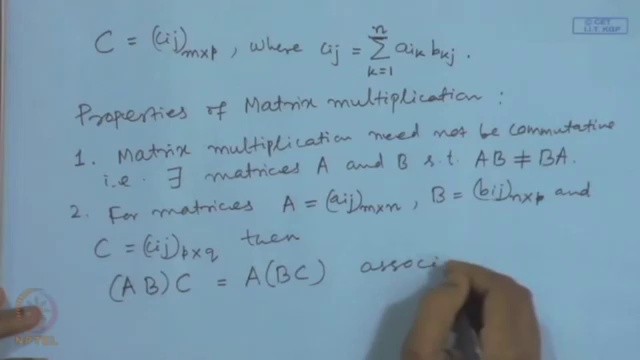 © CET
I.I.T. KGP
C = (cij)m×p , where cij = ∑ₖ₌₁ⁿ aik bkj .
Properties of Matrix multiplication :
1. Matrix multiplication need not be commutative
i.e. ∃ matrices A and B s.t. AB ≠ BA.
2. For matrices A = (aij)m×n , B = (bij)n×p and
C = (cij)p×q then
(AB)C = A(BC) associ
NPTEL